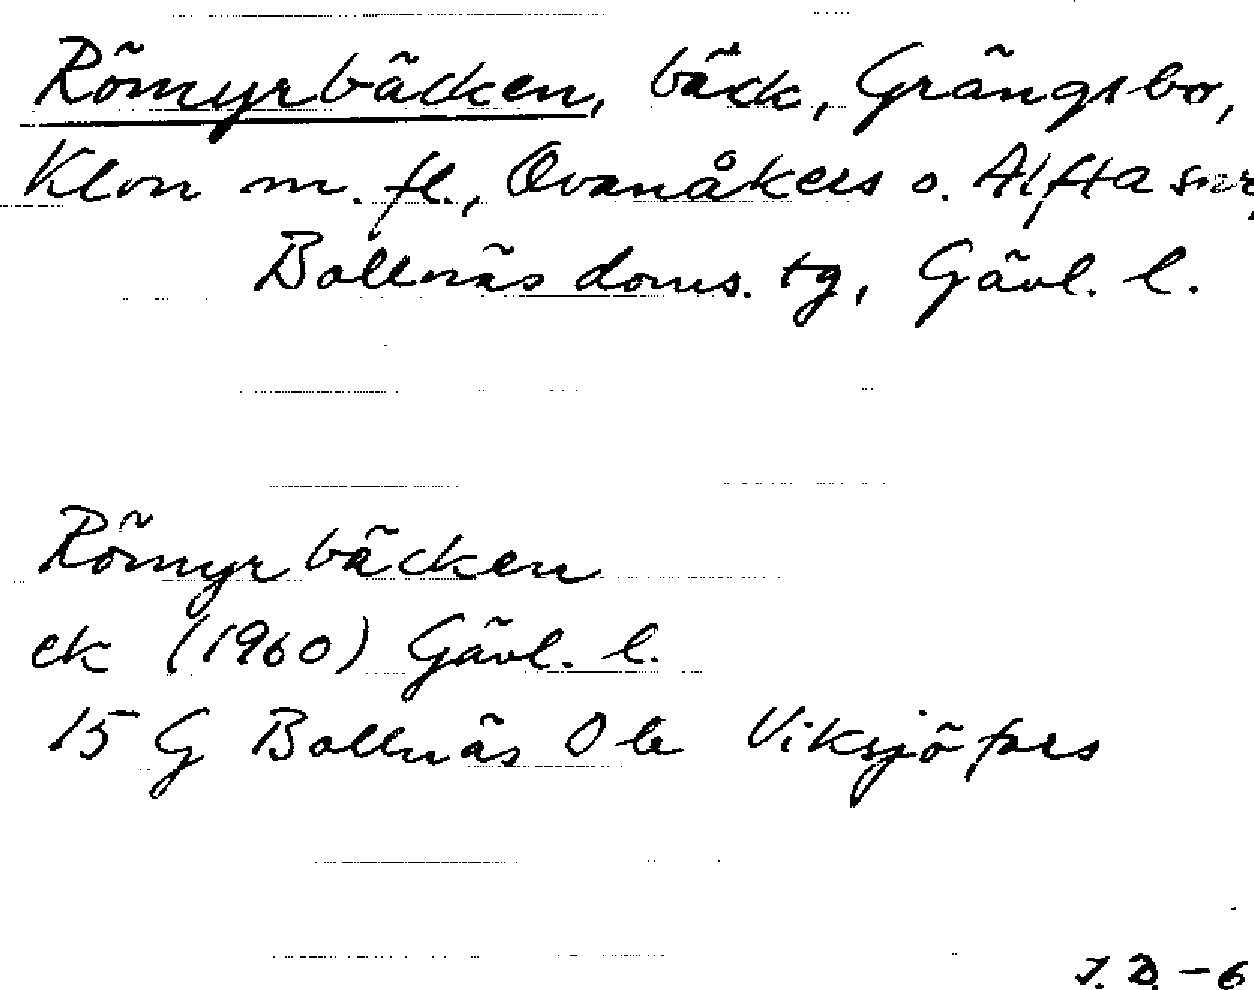 Römyrbäcken, bäck, Grängsbo,
Klon m. fl., Ovanåkers o. Alfta snr,
Bollnäs doms. tg, Gävl. l.
Römyrbäcken
ek (1960) Gävl. l.
15 G Bollnäs 0 b Viksjöfors
J. D. - 6